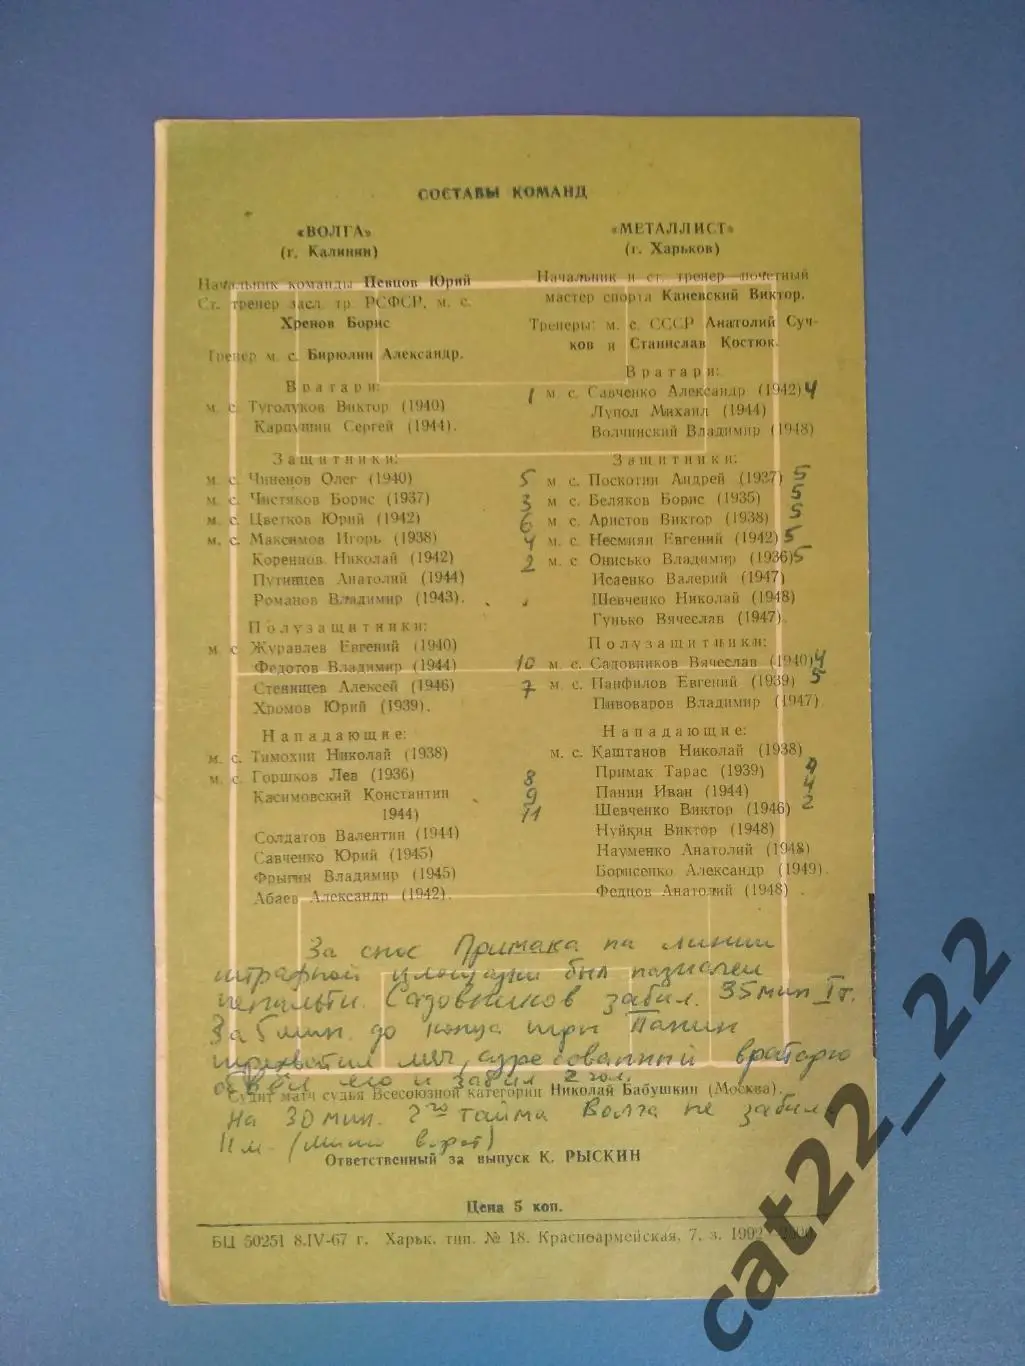 СОСТАВЫ КОМАНД
«ВОЛГА»
(г. Калинин)
Начальник команды Певцов Юрий
Ст. тренер засл. тр. РСФСР, м. с.
Хренов Борис
Тренер м. с. Бирюлин Александр.
Вратари:
м. с. Туголуков Виктор (1940)
Карпушин Сергей (1944).
Защитники:
м. с. Чиненов Олег (1940)
м. с. Чистяков Борис (1937)
м. с. Цветков Юрий (1942)
м. с. Максимов Игорь (1938)
Коренцов Николай (1942)
Путинцев Анатолий (1944)
Романов Владимир (1943).
Полузащитники:
м. с. Журавлев Евгений (1940)
Федотов Владимир (1944)
Стенищев Алексей (1946)
Хромов Юрий (1939).
Нападающие:
м. с. Тимохин Николай (1938)
м. с. Горшков Лев (1936)
Касимовский Константин
1944)
Солдатов Валентин (1944)
Савченко Юрий (1945)
Фрыгин Владимир (1945)
Абаев Александр (1942).
«МЕТАЛЛИСТ»
(г. Харьков)
Начальник и ст. тренер почетный
мастер спорта Каневский Виктор.
Тренеры: м. с. СССР Анатолий Суч-
ков и Станислав Костюк.
Вратари:
1 м. с. Савченко Александр (1942) 4
Лупол Михаил (1944)
Волчинский Владимир (1948)
Защитники:
5 м. с. Поскотин Андрей (1937) 5
3 м. с. Беляков Борис (1935) 5
6 м. с. Аристов Виктор (1938) 5
4 м. с. Несмиян Евгений (1942) 5
2 м. с. Онисько Владимир (1936) 5
Исаенко Валерий (1947)
Шевченко Николай (1948)
Гунько Вячеслав (1947).
Полузащитники:
10 м. с. Садовников Вячеслав (1940) 4
7 м. с. Панфилов Евгений (1939) 5
Пивоваров Владимир (1947).
Нападающие:
м. с. Каштанов Николай (1938)
8 Примак Тарас (1939) 4
9 Панин Иван (1944) 4
11 Шевченко Виктор (1946) 2
Нуйкин Виктор (1948)
Науменко Анатолий (1948)
Борисенко Александр (1949).
Федцов Анатолий (1948) .
За снос Примака на линии
штрафной площадки был назначен
пенальти. Садовников забил. 35 мин I т.
За 5 мин. до конца игры Панин
перехватил мяч, адресованный вратарю
его и забил 2 гол.
Судит матч судья Всесоюзной категории Николай Бабушкин (Москва).
На 30 мин. 2го тайма Волга не забила
11 м. (мимо ворот)
Ответственный за выпуск К. РЫСКИН
Цена 5 коп.
БЦ 50251 8.IV-67 г. Харьк. тип. № 18. Красноармейская, 7, з. 1992
cat22_22